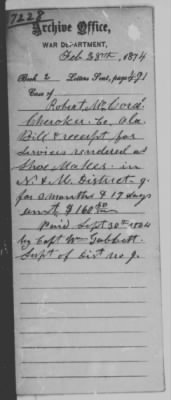 7228
Archive Office,
WAR DEPARTMENT,
Feb 28th, 1874
Book 2 Letters Sent, page 491
Case of
Robert McCord.
Cherokee Co, Ala
Bill & receipt for
services rendered as
Shoe Maker in
N. & M. District 9.
for 2 months & 17 days
amt $ 160
Paid Sept 30th 1864
by Capt Wm Gabbett.
Supt of Dist no 9.